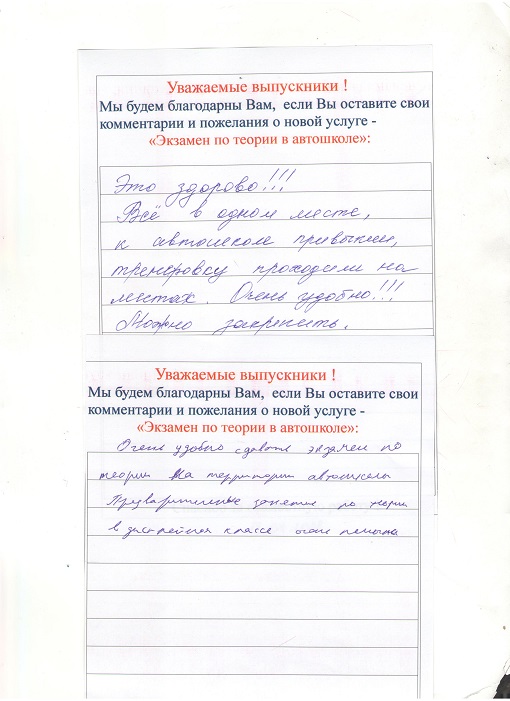 Уважаемые выпускники !
Мы будем благодарны Вам, если Вы оставите свои
комментарии и пожелания о новой услуге -
«Экзамен по теории в автошколе»:
Это здорово!!!
Всё в одном месте,
к автошколе привыкли,
тренировку проходили на
местах. Очень удобно!!!
Можно закрепить.
Уважаемые выпускники !
Мы будем благодарны Вам, если Вы оставите свои
комментарии и пожелания о новой услуге -
«Экзамен по теории в автошколе»:
Очень удобно сдавать экзамен по
теории на территории автошколы
Предварительные занятия по теории
в классе очень